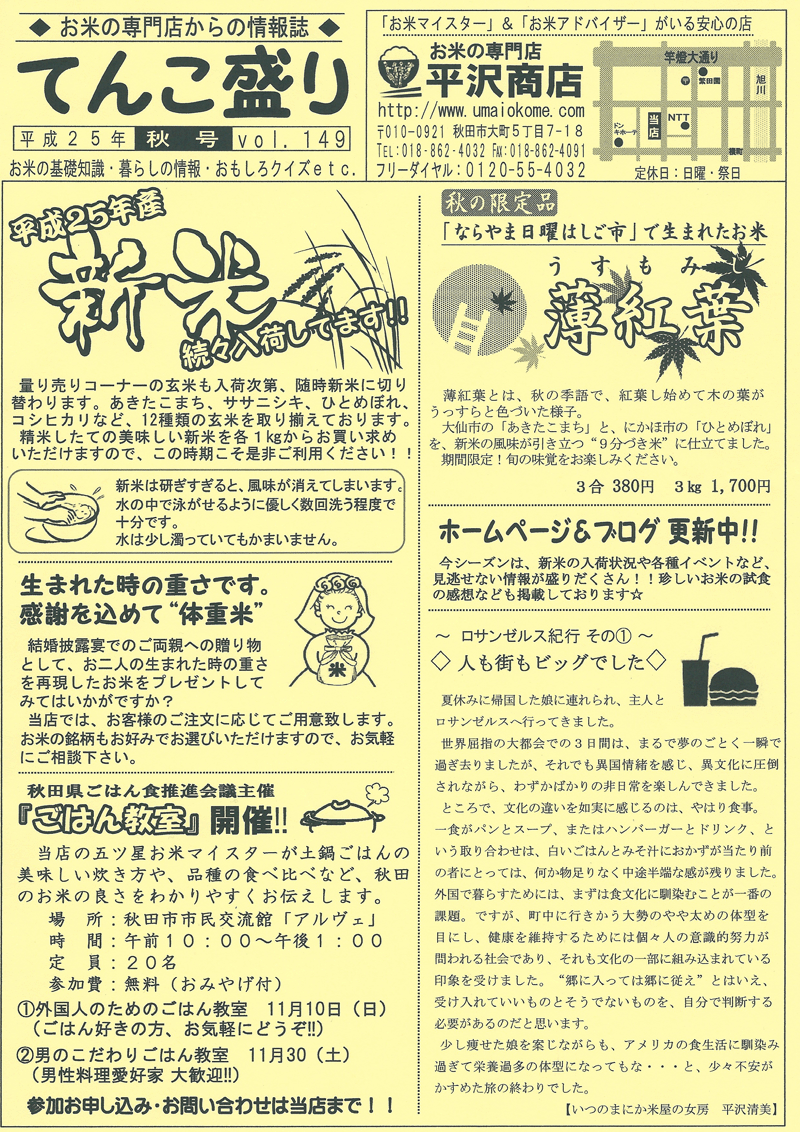 ◆ お米の専門店からの情報誌 ◆
てんこ盛り
平成25年 秋 号 vol.149
お米の基礎知識・暮らしの情報・おもしろクイズetc.
「お米マイスター」&「お米アドバイザー」がいる安心の店
お米の専門店
平沢商店
http://www.umaiokome.com
〒010-0921 秋田市大町5丁目7-18
TEL:018-862-4032 FAX:018-862-4091
フリーダイヤル:0120-55-4032
竿燈大通り
旭川
繁田園
ドンキホーテ
当店
NTT
横町
定休日:日曜・祭日
平成25年産
新米
続々入荷してます!!
量り売りコーナーの玄米も入荷次第、随時新米に切り
替わります。あきたこまち、ササニシキ、ひとめぼれ、
コシヒカリなど、12種類の玄米を取り揃えております。
精米したての美味しい新米を各1kgからお買い求め
いただけますので、この時期こそ是非ご利用ください!!
新米は研ぎすぎると、風味が消えてしまいます。
水の中で泳がせるように優しく数回洗う程度で
十分です。
水は少し濁っていてもかまいません。
生まれた時の重さです。
感謝を込めて“体重米”
米
結婚披露宴でのご両親への贈り物
として、お二人の生まれた時の重さ
を再現したお米をプレゼントして
みてはいかがですか?
当店では、お客様のご注文に応じてご用意致します。
お米の銘柄もお好みでお選びいただけますので、お気軽
にご相談下さい。
秋田県ごはん食推進会議主催
『ごはん教室』開催!!
当店の五ツ星お米マイスターが土鍋ごはんの
美味しい炊き方や、品種の食べ比べなど、秋田
のお米の良さをわかりやすくお伝えします。
場 所:秋田市市民交流館「アルヴェ」
時 間:午前10:00~午後1:00
定 員:20名
参加費:無料(おみやげ付)
①外国人のためのごはん教室 11月10日(日)
(ごはん好きの方、お気軽にどうぞ!!)
②男のこだわりごはん教室 11月30(土)
(男性料理愛好家 大歓迎!!)
参加お申し込み・お問い合わせは当店まで!!
秋の限定品
「ならやま日曜はしご市」で生まれたお米
うすもみじ
薄紅葉
薄紅葉とは、秋の季語で、紅葉し始めて木の葉が
うっすらと色づいた様子。
大仙市の「あきたこまち」と、にかほ市の「ひとめぼれ」
を、新米の風味が引き立つ“9分づき米”に仕立てました。
期間限定!旬の味覚をお楽しみください。
3合 380円 3kg 1,700円
ホームページ&ブログ 更新中!!
今シーズンは、新米の入荷状況や各種イベントなど、
見逃せない情報が盛りだくさん!!珍しいお米の試食
の感想なども掲載しております☆
~ ロサンゼルス紀行 その① ~
◇ 人も街もビッグでした◇
夏休みに帰国した娘に連れられ、主人と
ロサンゼルスへ行ってきました。
世界屈指の大都会での3日間は、まるで夢のごとく一瞬で
過ぎ去りましたが、それでも異国情緒を感じ、異文化に圧倒
されながら、わずかばかりの非日常を楽しんできました。
ところで、文化の違いを如実に感じるのは、やはり食事。
一食がパンとスープ、またはハンバーガーとドリンク、と
いう取り合わせは、白いごはんとみそ汁におかずが当たり前
の者にとっては、何か物足りなく中途半端な感が残りました。
外国で暮らすためには、まずは食文化に馴染むことが一番の
課題。ですが、町中に行きかう大勢のやや太めの体型を
目にし、健康を維持するためには個々人の意識的努力が
問われる社会であり、それも文化の一部に組み込まれている
印象を受けました。“郷に入っては郷に従え”とはいえ、
受け入れていいものとそうでないものを、自分で判断する
必要があるのだと思います。
少し痩せた娘を案じながらも、アメリカの食生活に馴染み
過ぎて栄養過多の体型になってもな・・・と、少々不安が
かすめた旅の終わりでした。
【いつのまにか米屋の女房 平沢清美】